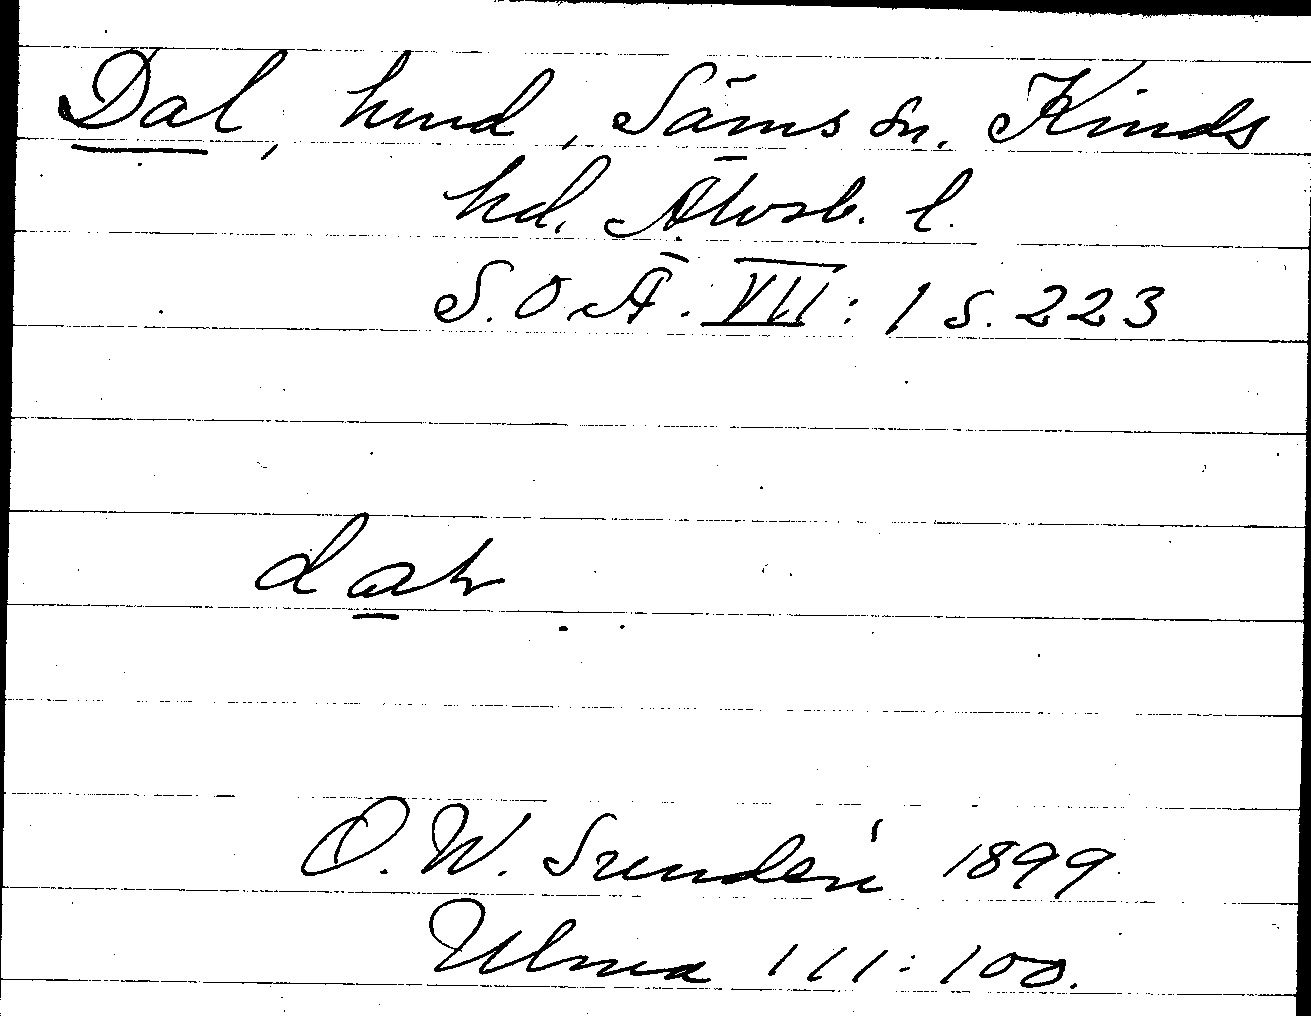 Dal, hmd, Säms sn. Kinds
hd. Älvsb. l.
S.O.Ä. VII: 1 s. 223
O. W. Sundén 1899
Ulma 111:100.